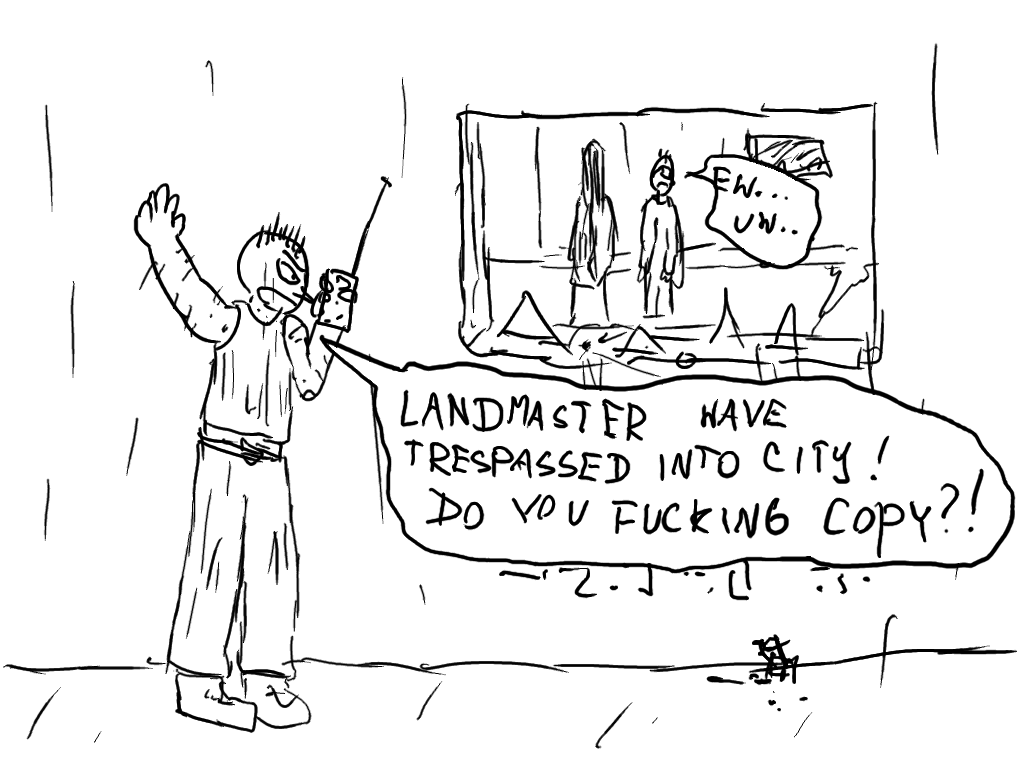 EW...
UW..
LANDMASTER HAVE
TRESPASSED INTO CITY!
DO YOU FUCKING COPY?!